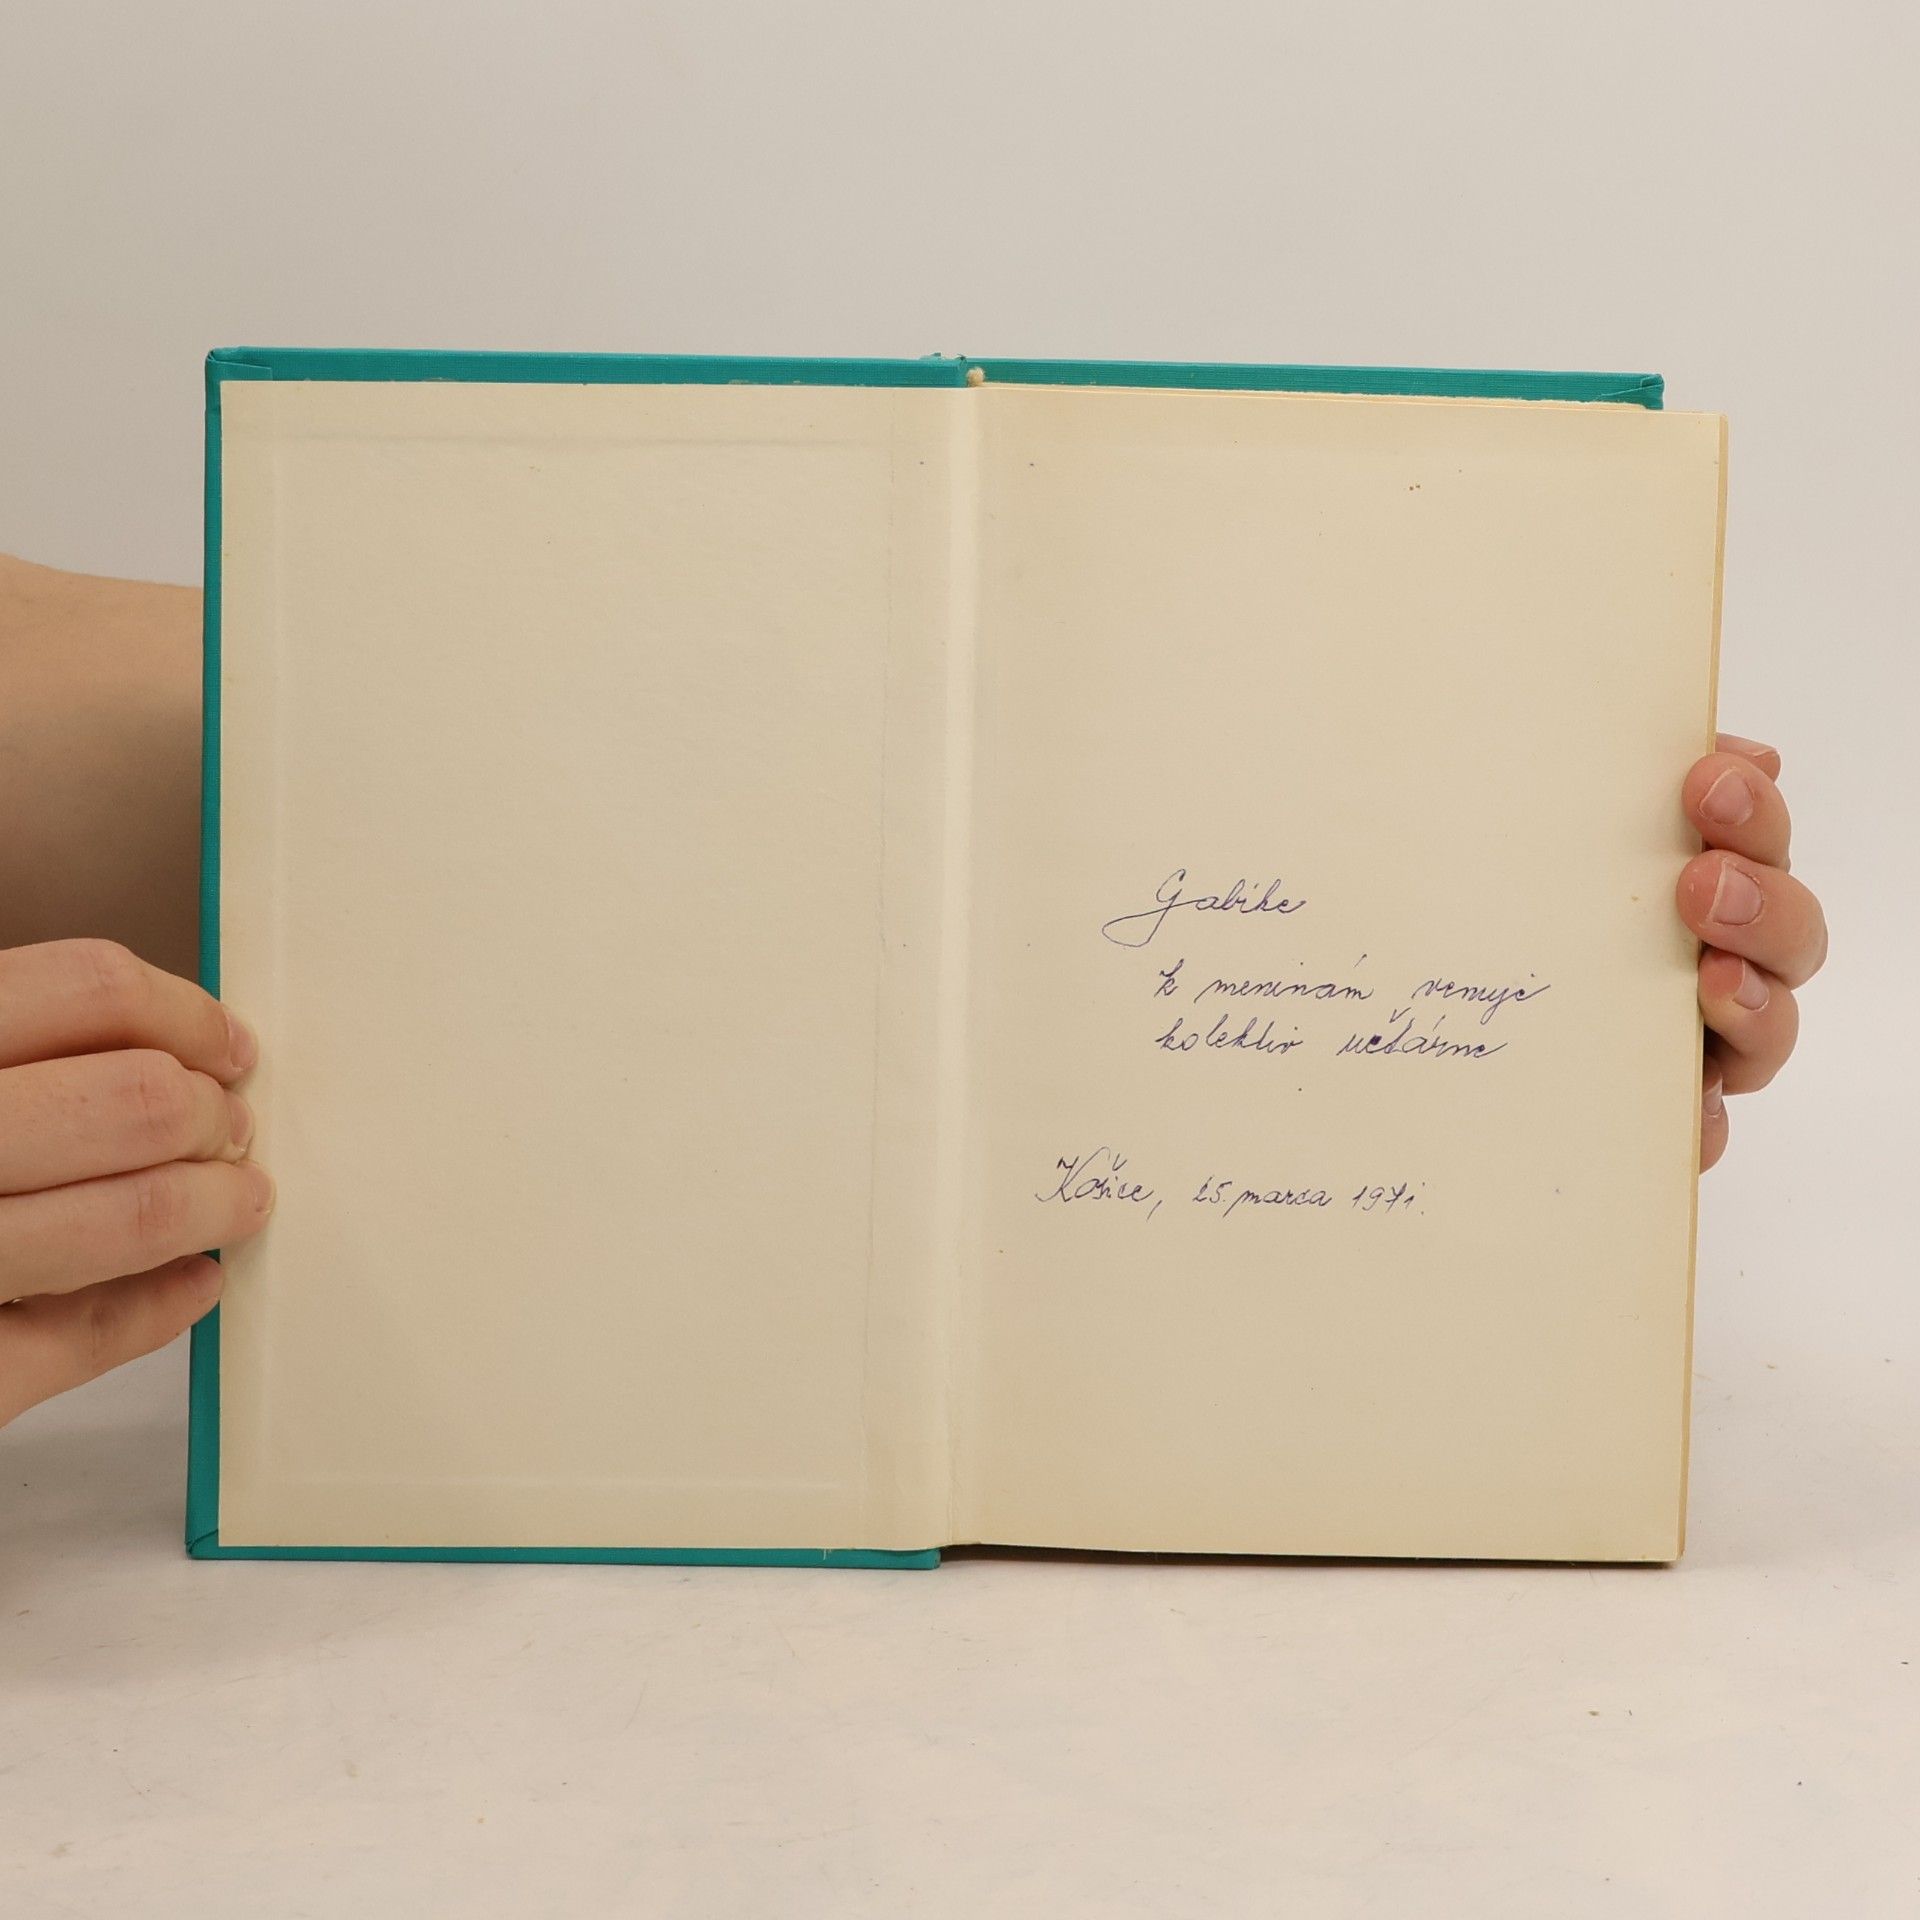 Gabike
k meninám venuje
kolektív učtárne
Košice, 25. marca 1971.